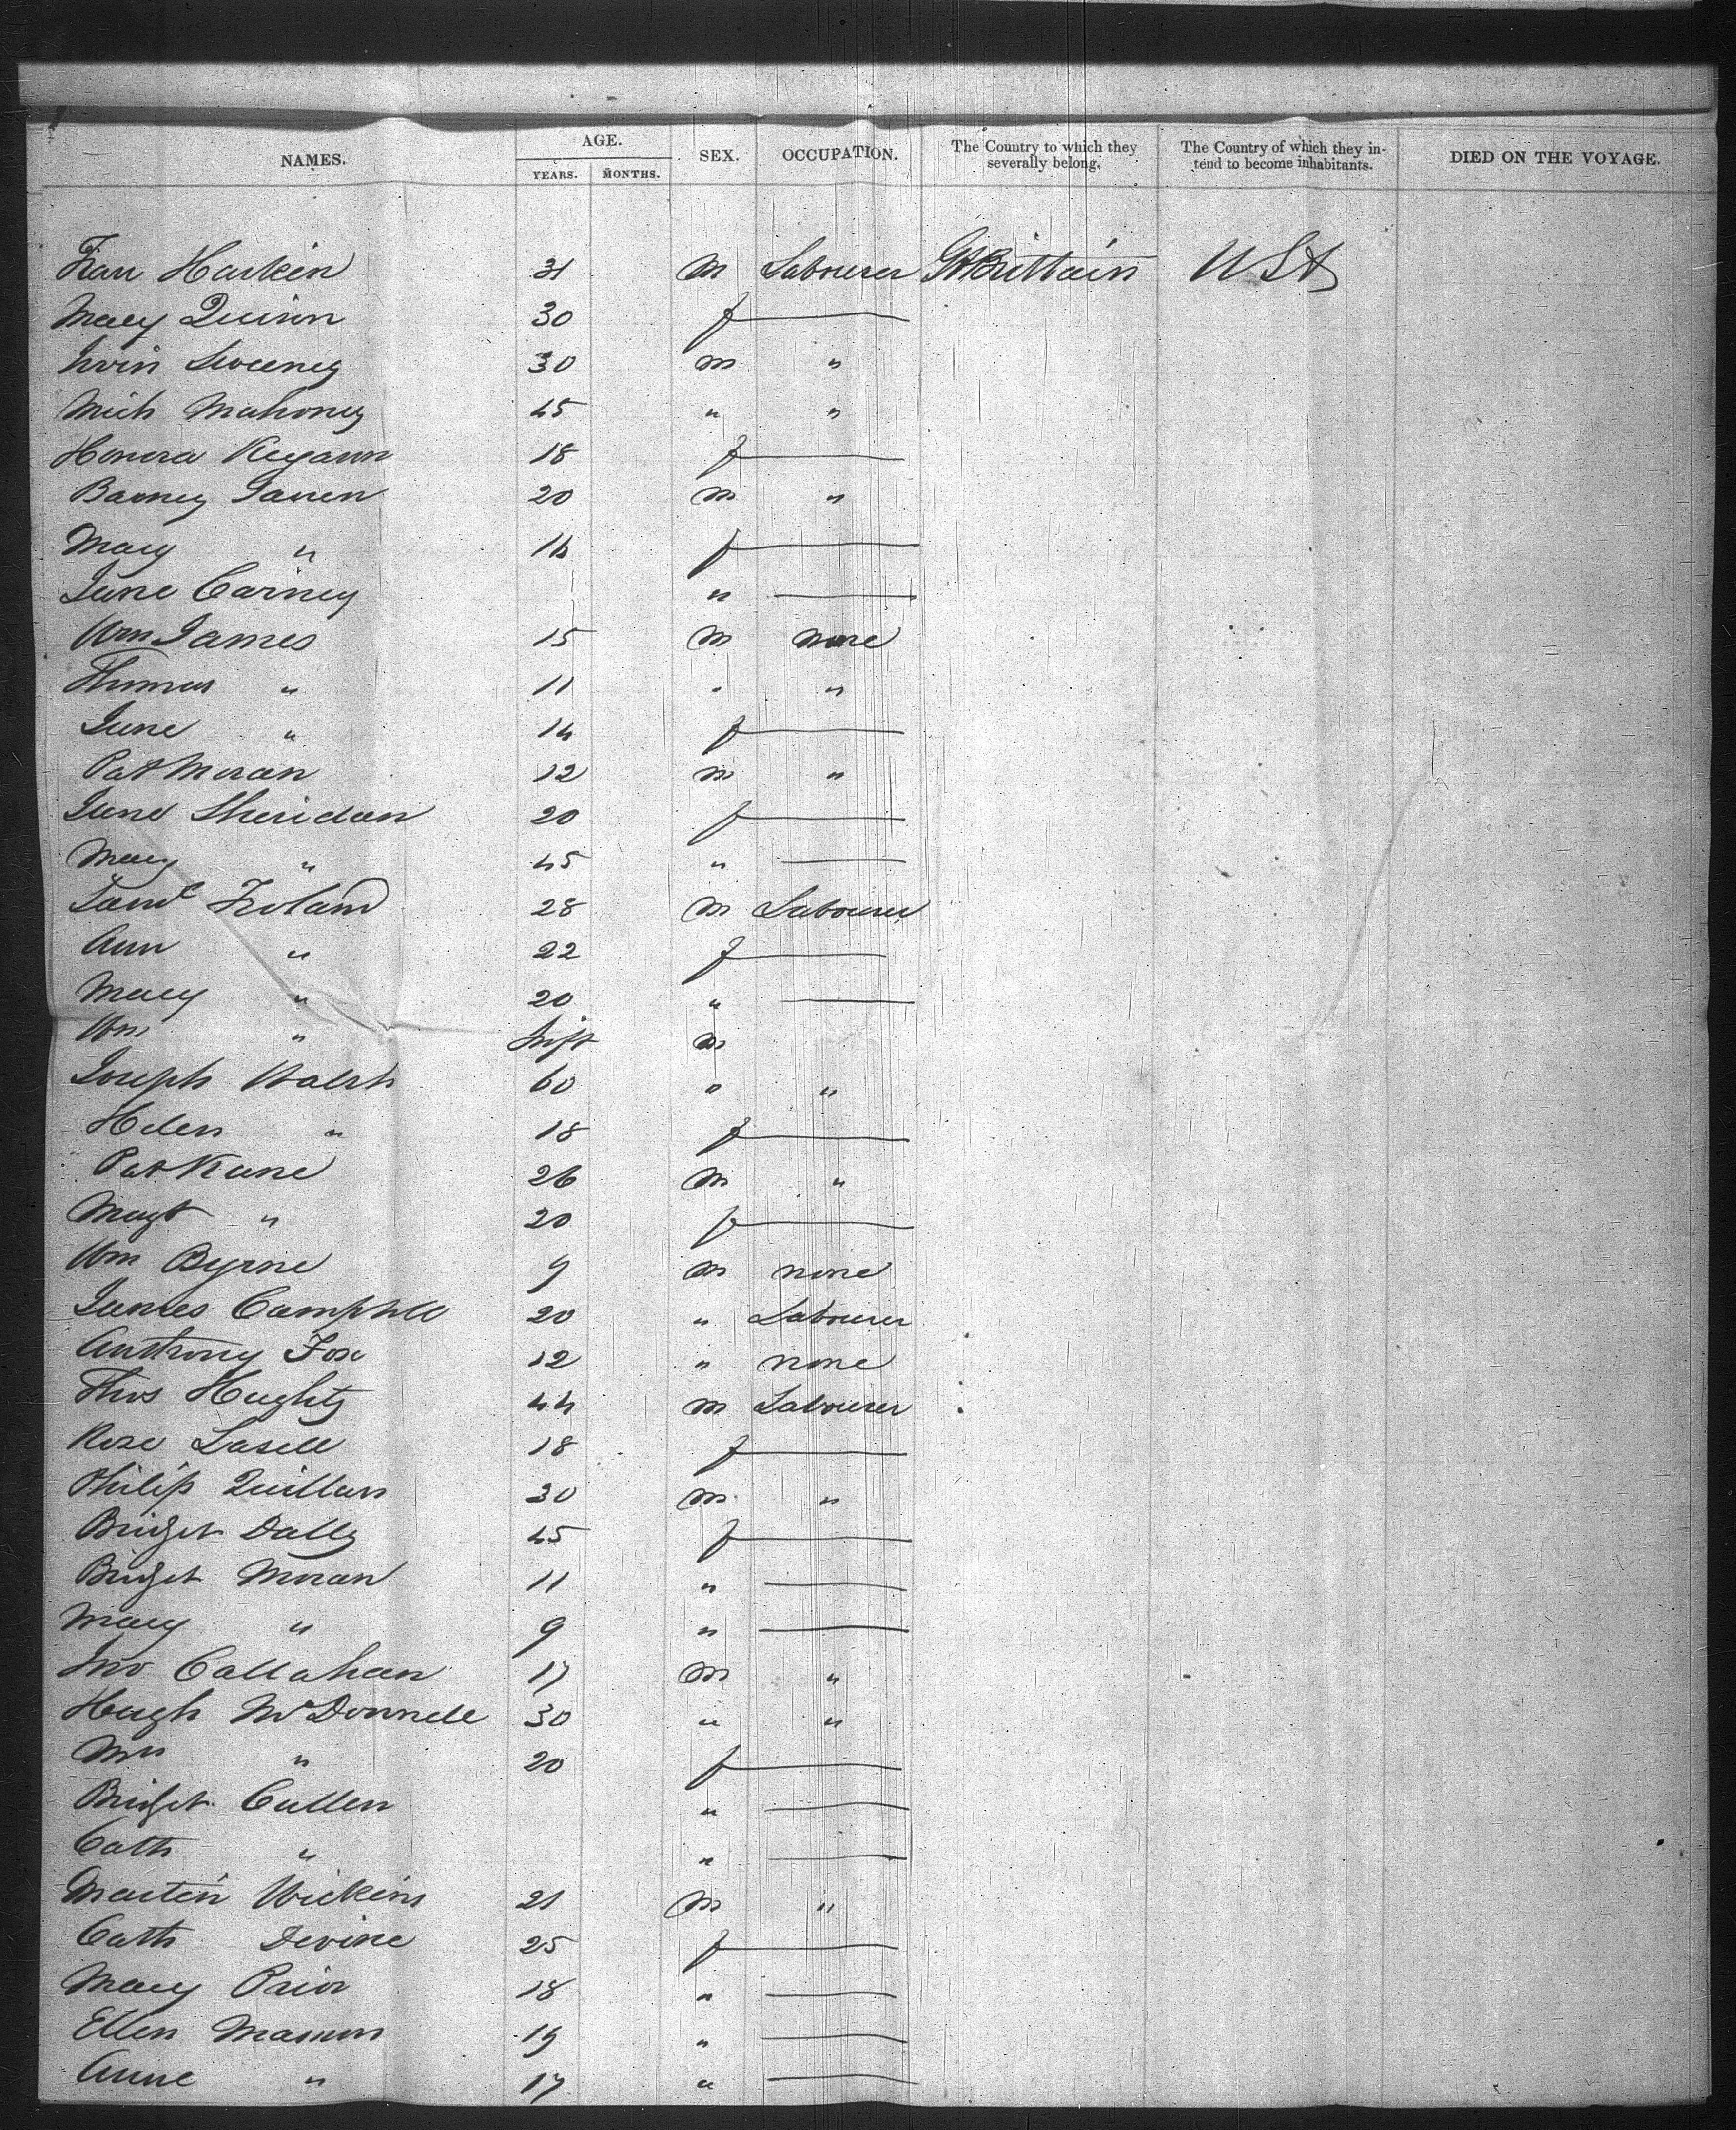 NAMES. AGE. SEX. OCCUPATION. The Country to which they severally belong. The Country of which they intend to become inhabitants. DIED ON THE VOYAGE.
YEARS. MONTHS.
Harkin 31 m Labourer Gt Brittain USA
Mary Quinn 30 f
Sweeney 30 m "
Mich Mahoney 45 " "
Honora Regann 18 f
Barney 20 m "
Mary " 16 f
Jane Carney "
Wm James 15 m none
Thomas " 11 " "
Jane " 14 f
Pat Moran 12 m "
Jane Sheridan 20 f
Mary " 45 "
Saml 28 m Labourer
Ann " 22 f
Mary " 20 "
Wm " Inft m
Joseph Walsh 60 " "
Helen " 18 f
Pat Kane 26 m "
Magt " 20 f
Wm Byrne 9 m none
James Campbell 20 " Labourer
Anthony Fox 12 " none
Thos Hughty 44 m Labourer
Rose Lasell 18 f
Philip Quillan 30 m "
Bridget Dally 45 f
Bridget Moran 11 "
Mary " 9 "
Jno Callahan 17 m "
Hugh McDonnell 30 " "
Mrs " 20 f
Bridget Cullen "
Cath " "
Martin Wickins 21 m "
Cath Devine 25 f
Mary Prior 18 "
Ellen 19 "
Anne " 17 "